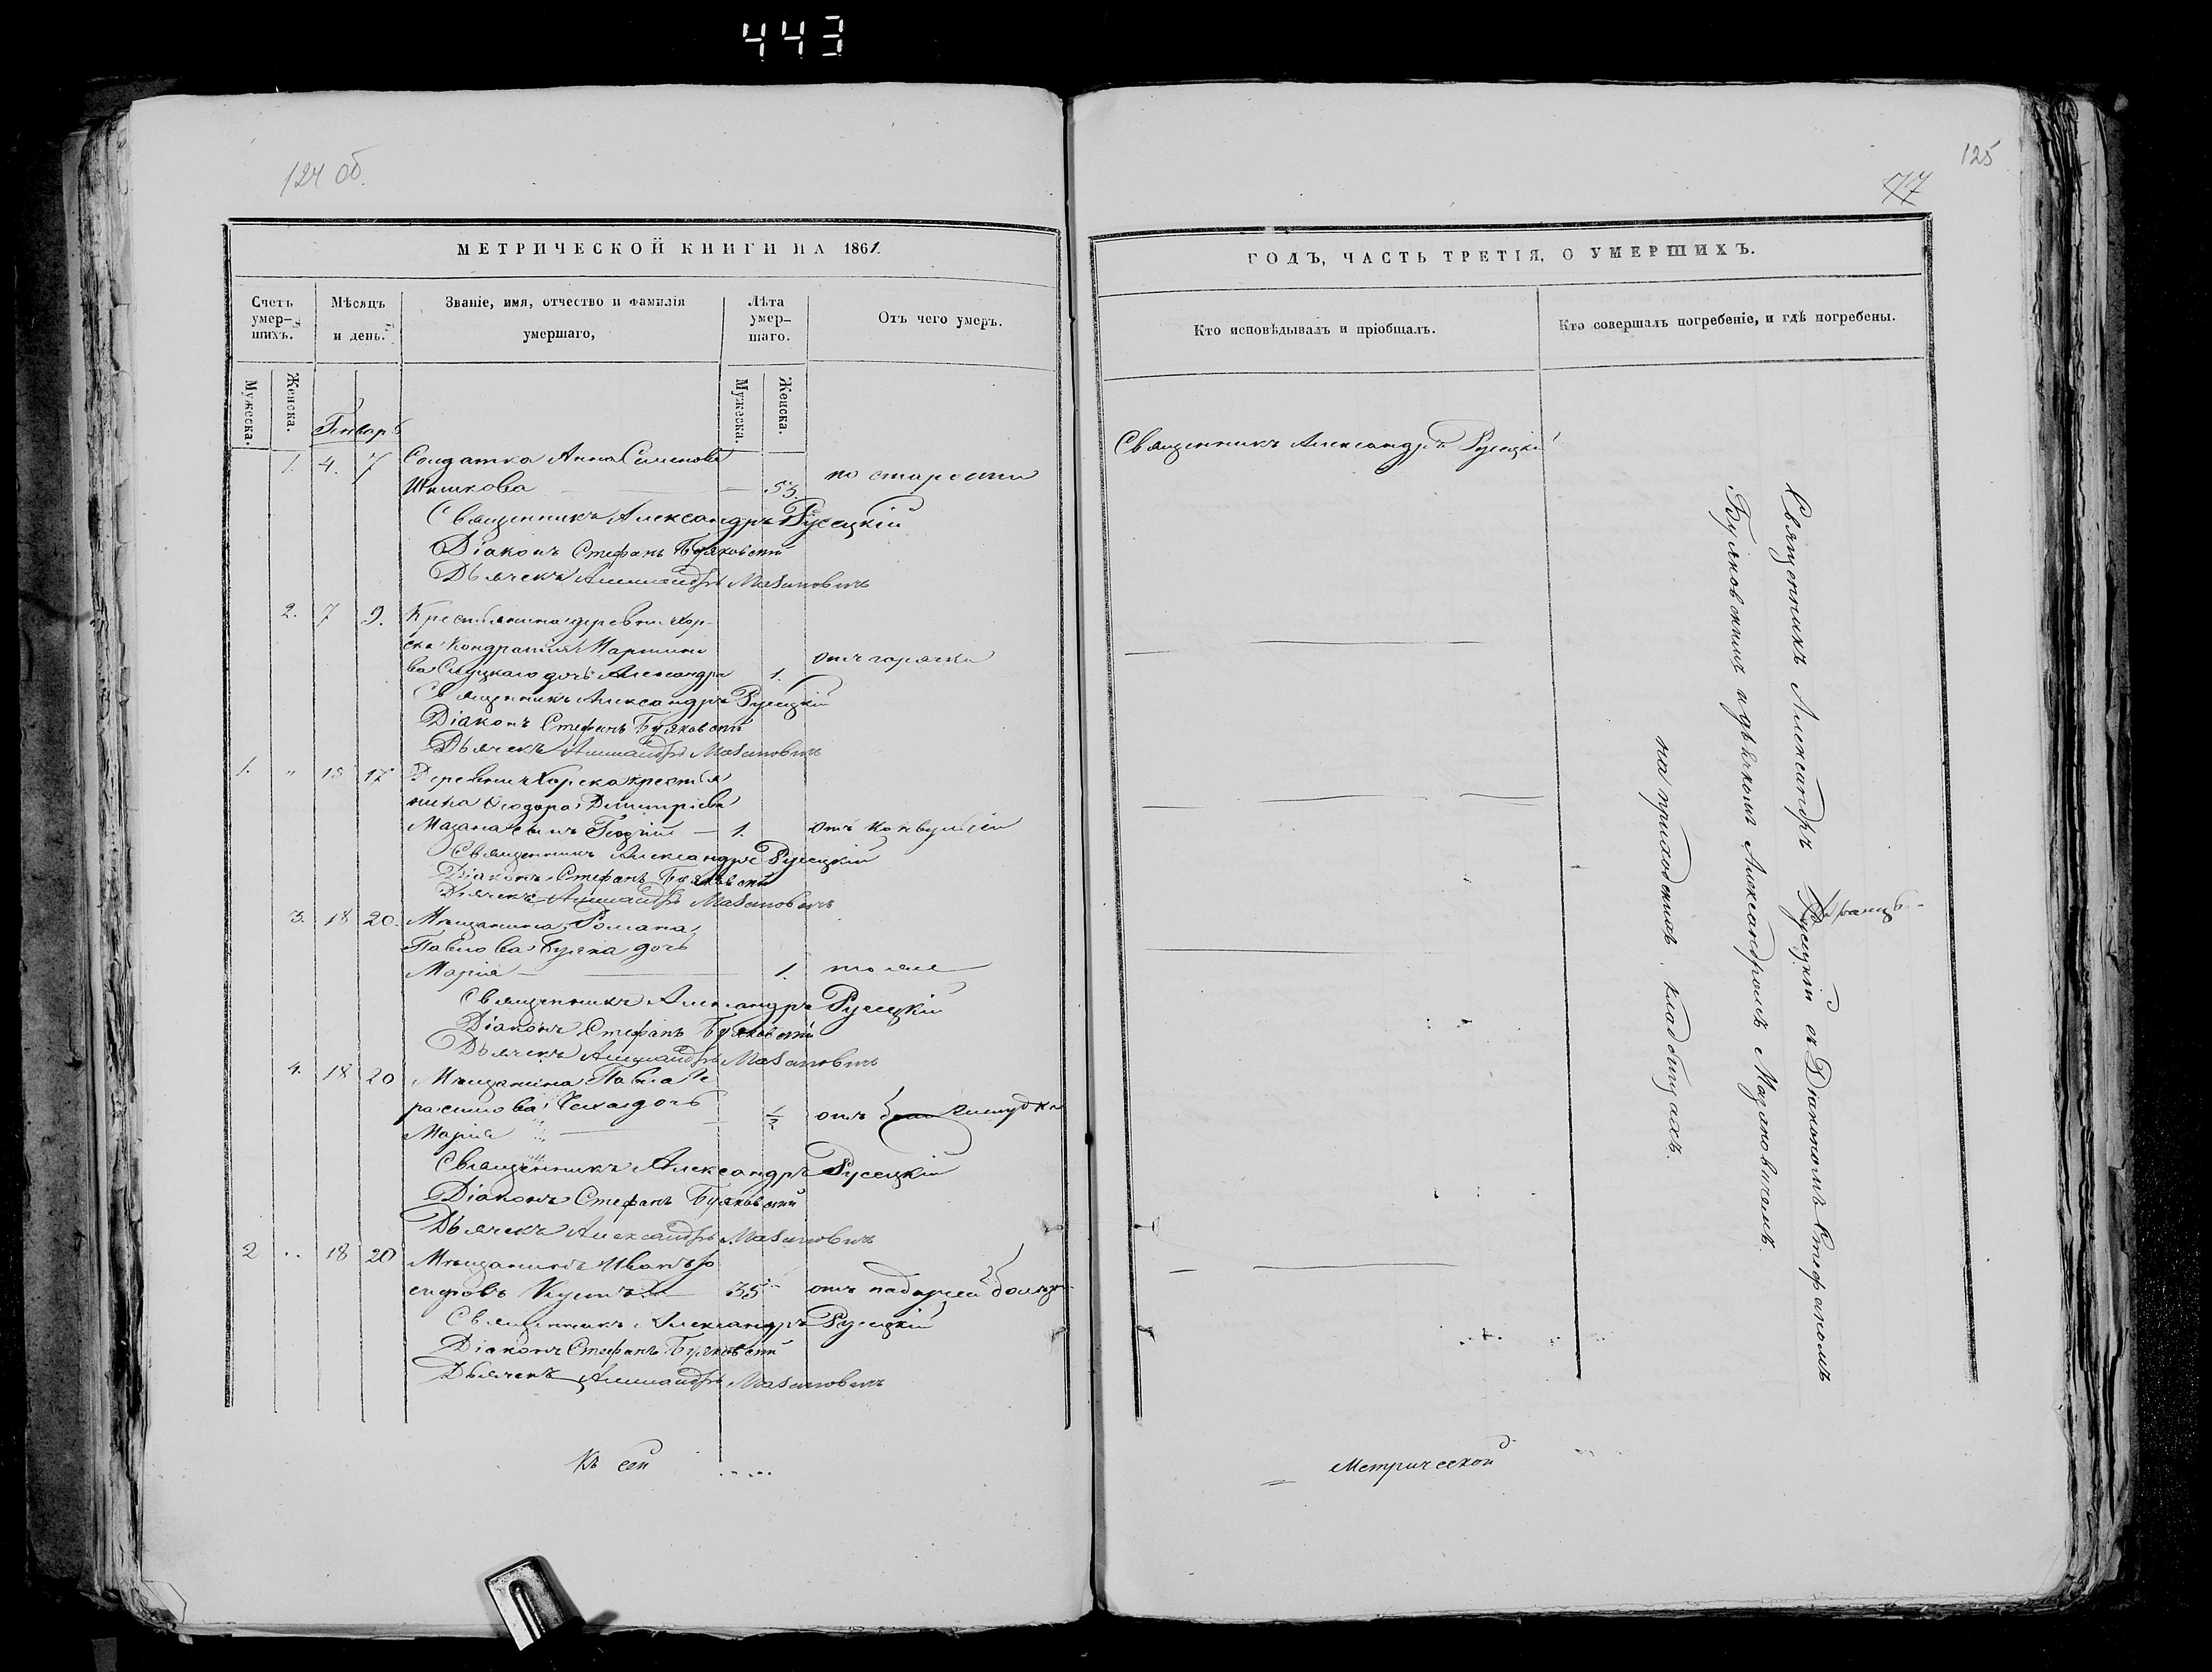 443
124 об.
МЕТРИЧЕСКОЙ КНИГИ НА 1861.
Счетъ умер-шихъ.
Мѣсяцъ и день.
Званіе, имя, отчество и фамилія умершаго,
Лѣта умер-шаго.
Отъ чего умеръ.
Мужеска.
Женска.
Мужеска.
Женска.
Генварь
1. 4. 7 Солдатка Анна Семенова
Шишкова 55. по старости
Священникъ Александръ Русецкій
Діаконъ Стефанъ Буяковскій
Дьячекъ Александръ Мазановичъ
2. 7 9. Крестьянина деревни Хор-
ска Кондратія Мартино
ва Слуцкаго дочь Александра 1. отъ горячки
Священникъ Александръ Русецкій
Діаконъ Стефанъ Буяковскій
Дьячекъ Александръ Мазановичъ
1. " 15 17 Деревни Хорска крестья
нина Ѳеодора Димитріева
Мазана сынъ Георгій — 1. отъ конвульсіи
Священникъ Александръ Русецкій
Діаконъ Стефанъ Буяковскій
Дьячекъ Александръ Мазановичъ
3. 18 20. Мѣщанина Романа
Павлова Буяка дочь
Марія 1. тоже
Священникъ Александръ Русецкій
Діаконъ Стефанъ Буяковскій
Дьячекъ Александръ Мазановичъ
4. 18 20 Мѣщанина Павла Ге
расимова дочь
Марія ½ отъ желудка
Священникъ Александръ Русецкій
Діаконъ Стефанъ Буяковскій
Дьячекъ Александръ Мазановичъ
2 .. 18 20 Мѣщанинъ Иванъ Іо
сифовъ 35 отъ падучей
Священникъ Александръ Русецкій
Діаконъ Стефанъ Буяковскій
Дьячекъ Александръ Мазановичъ
Къ сей
125
77
ГОДЪ, ЧАСТЬ ТРЕТІЯ, О УМЕРШИХЪ.
Кто исповѣдывалъ и пріобщалъ.
Кто совершалъ погребеніе, и гдѣ погребены.
Священникъ Александръ Русецкій
Священникъ Александръ Русецкій съ Діакономъ Стефаномъ
Буяковскимъ и дьячкомъ Александромъ Мазановичемъ
на приходскихъ кладбищахъ.
Метрической